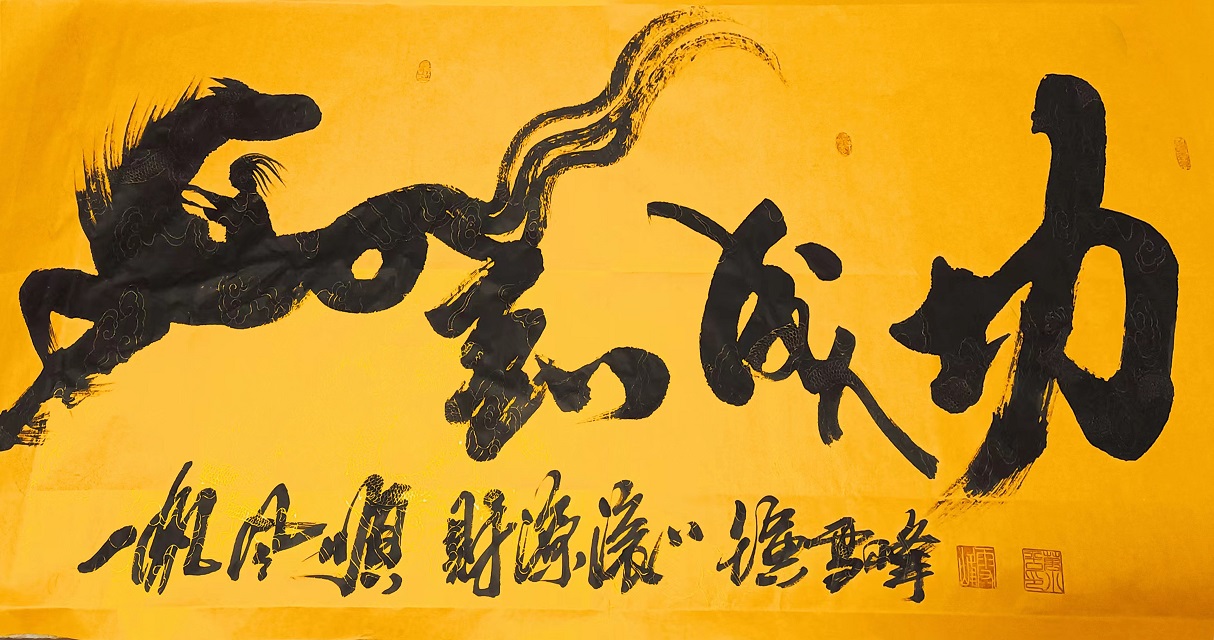 马到成功
一帆风順 財源滚滚 雪峰